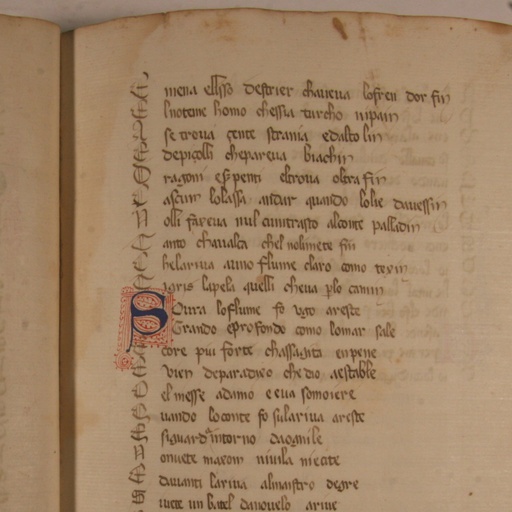 mena ellisso destrier chaueua lofren dor fin
lnoteme homo chessia turcho nipain
se troua çente strania edalto lin
depiçolli chepareua biachin
ragoni eserpenti eltroua oltra fin
lolassa andar quando lolie dauessin
olli fareua nul contrasto alconte palladin
anto chaualca chel nolimete fin
helariua auno flume claro como
igris lapela quelli cheua plo camin
Soura loflume fo vgo areste
Grando eprofondo como lomar sale
core piu forte chassagita enpene
vien deparadixo che dio aestabble
el messe adamo e eua
uando loconte fo sulariua areste
siguarda intorno daognile
maxom niuila
dauanti lariua almaistro degre
uete un batel danouelo ariue